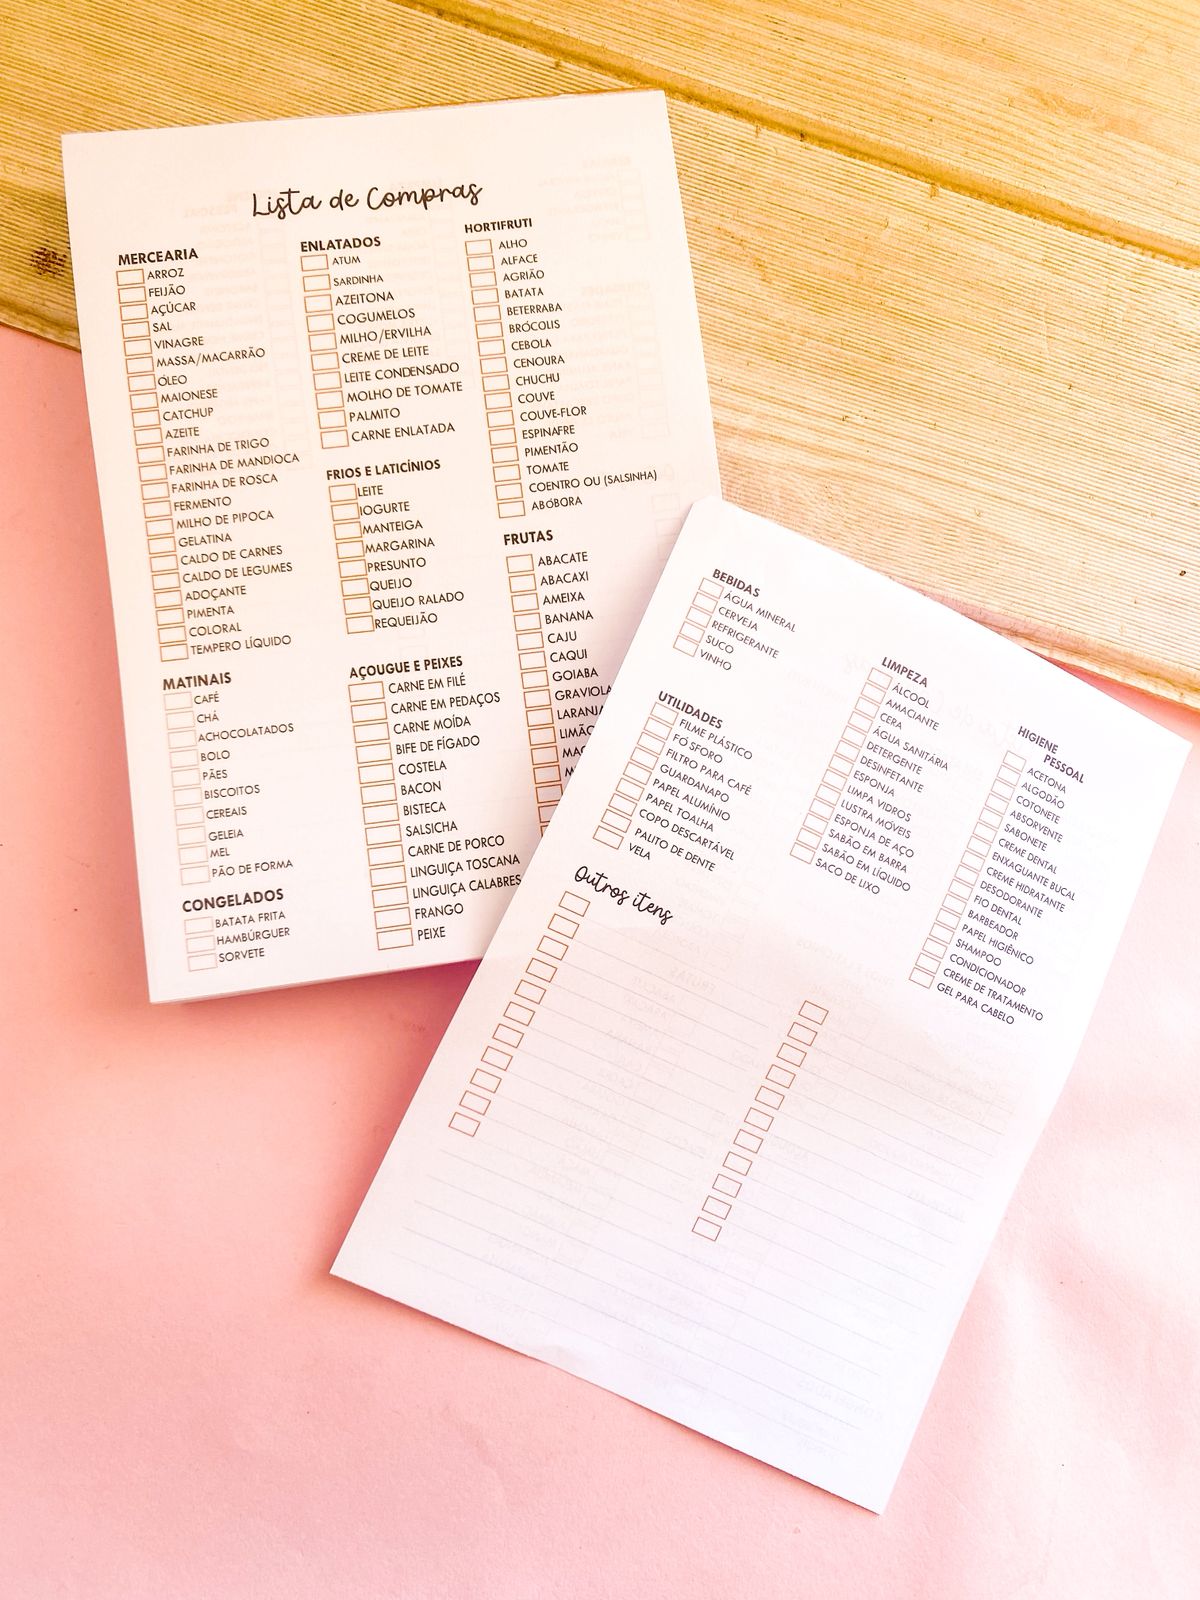 Lista de Compras
MERCEARIA
ARROZ
FEIJÃO
AÇÚCAR
SAL
VINAGRE
MASSA/MACARRÃO
ÓLEO
MAIONESE
CATCHUP
AZEITE
FARINHA DE TRIGO
FARINHA DE MANDIOCA
FARINHA DE ROSCA
FERMENTO
MILHO DE PIPOCA
GELATINA
CALDO DE CARNES
CALDO DE LEGUMES
ADOÇANTE
PIMENTA
COLORAL
TEMPERO LÍQUIDO
MATINAIS
CAFÉ
CHÁ
ACHOCOLATADOS
BOLO
PÃES
BISCOITOS
CEREAIS
GELEIA
MEL
PÃO DE FORMA
CONGELADOS
BATATA FRITA
HAMBÚRGUER
SORVETE
ENLATADOS
ATUM
SARDINHA
AZEITONA
COGUMELOS
MILHO/ERVILHA
CREME DE LEITE
LEITE CONDENSADO
MOLHO DE TOMATE
PALMITO
CARNE ENLATADA
FRIOS E LATICÍNIOS
LEITE
IOGURTE
MANTEIGA
MARGARINA
PRESUNTO
QUEIJO
QUEIJO RALADO
REQUEIJÃO
AÇOUGUE E PEIXES
CARNE EM FILÉ
CARNE EM PEDAÇOS
CARNE MOÍDA
BIFE DE FÍGADO
COSTELA
BACON
BISTECA
SALSICHA
CARNE DE PORCO
LINGUIÇA TOSCANA
LINGUIÇA CALABRES
FRANGO
PEIXE
HORTIFRUTI
ALHO
ALFACE
AGRIÃO
BATATA
BETERRABA
BRÓCOLIS
CEBOLA
CENOURA
CHUCHU
COUVE
COUVE-FLOR
ESPINAFRE
PIMENTÃO
TOMATE
COENTRO OU (SALSINHA)
ABÓBORA
FRUTAS
ABACATE
ABACAXI
AMEIXA
BANANA
CAJU
CAQUI
GOIABA
GRAVIOLA
LARANJ
LIMÃO
BEBIDAS
ÁGUA MINERAL
CERVEJA
REFRIGERANTE
SUCO
VINHO
UTILIDADES
FILME PLÁSTICO
FÓSFORO
FILTRO PARA CAFÉ
GUARDANAPO
PAPEL ALUMÍNIO
PAPEL TOALHA
COPO DESCARTÁVEL
PALITO DE DENTE
VELA
LIMPEZA
ÁLCOOL
AMACIANTE
CERA
ÁGUA SANITÁRIA
DETERGENTE
DESINFETANTE
ESPONJA
LIMPA VIDROS
LUSTRA MÓVEIS
ESPONJA DE AÇO
SABÃO EM BARRA
SABÃO EM LÍQUIDO
SACO DE LIXO
HIGIENE
PESSOAL
ACETONA
ALGODÃO
COTONETE
ABSORVENTE
SABONETE
CREME DENTAL
ENXAGUANTE BUCAL
CREME HIDRATANTE
DESODORANTE
FIO DENTAL
BARBEADOR
PAPEL HIGIÊNICO
SHAMPOO
CONDICIONADOR
CREME DE TRATAMENTO
GEL PARA CABELO
Outros itens